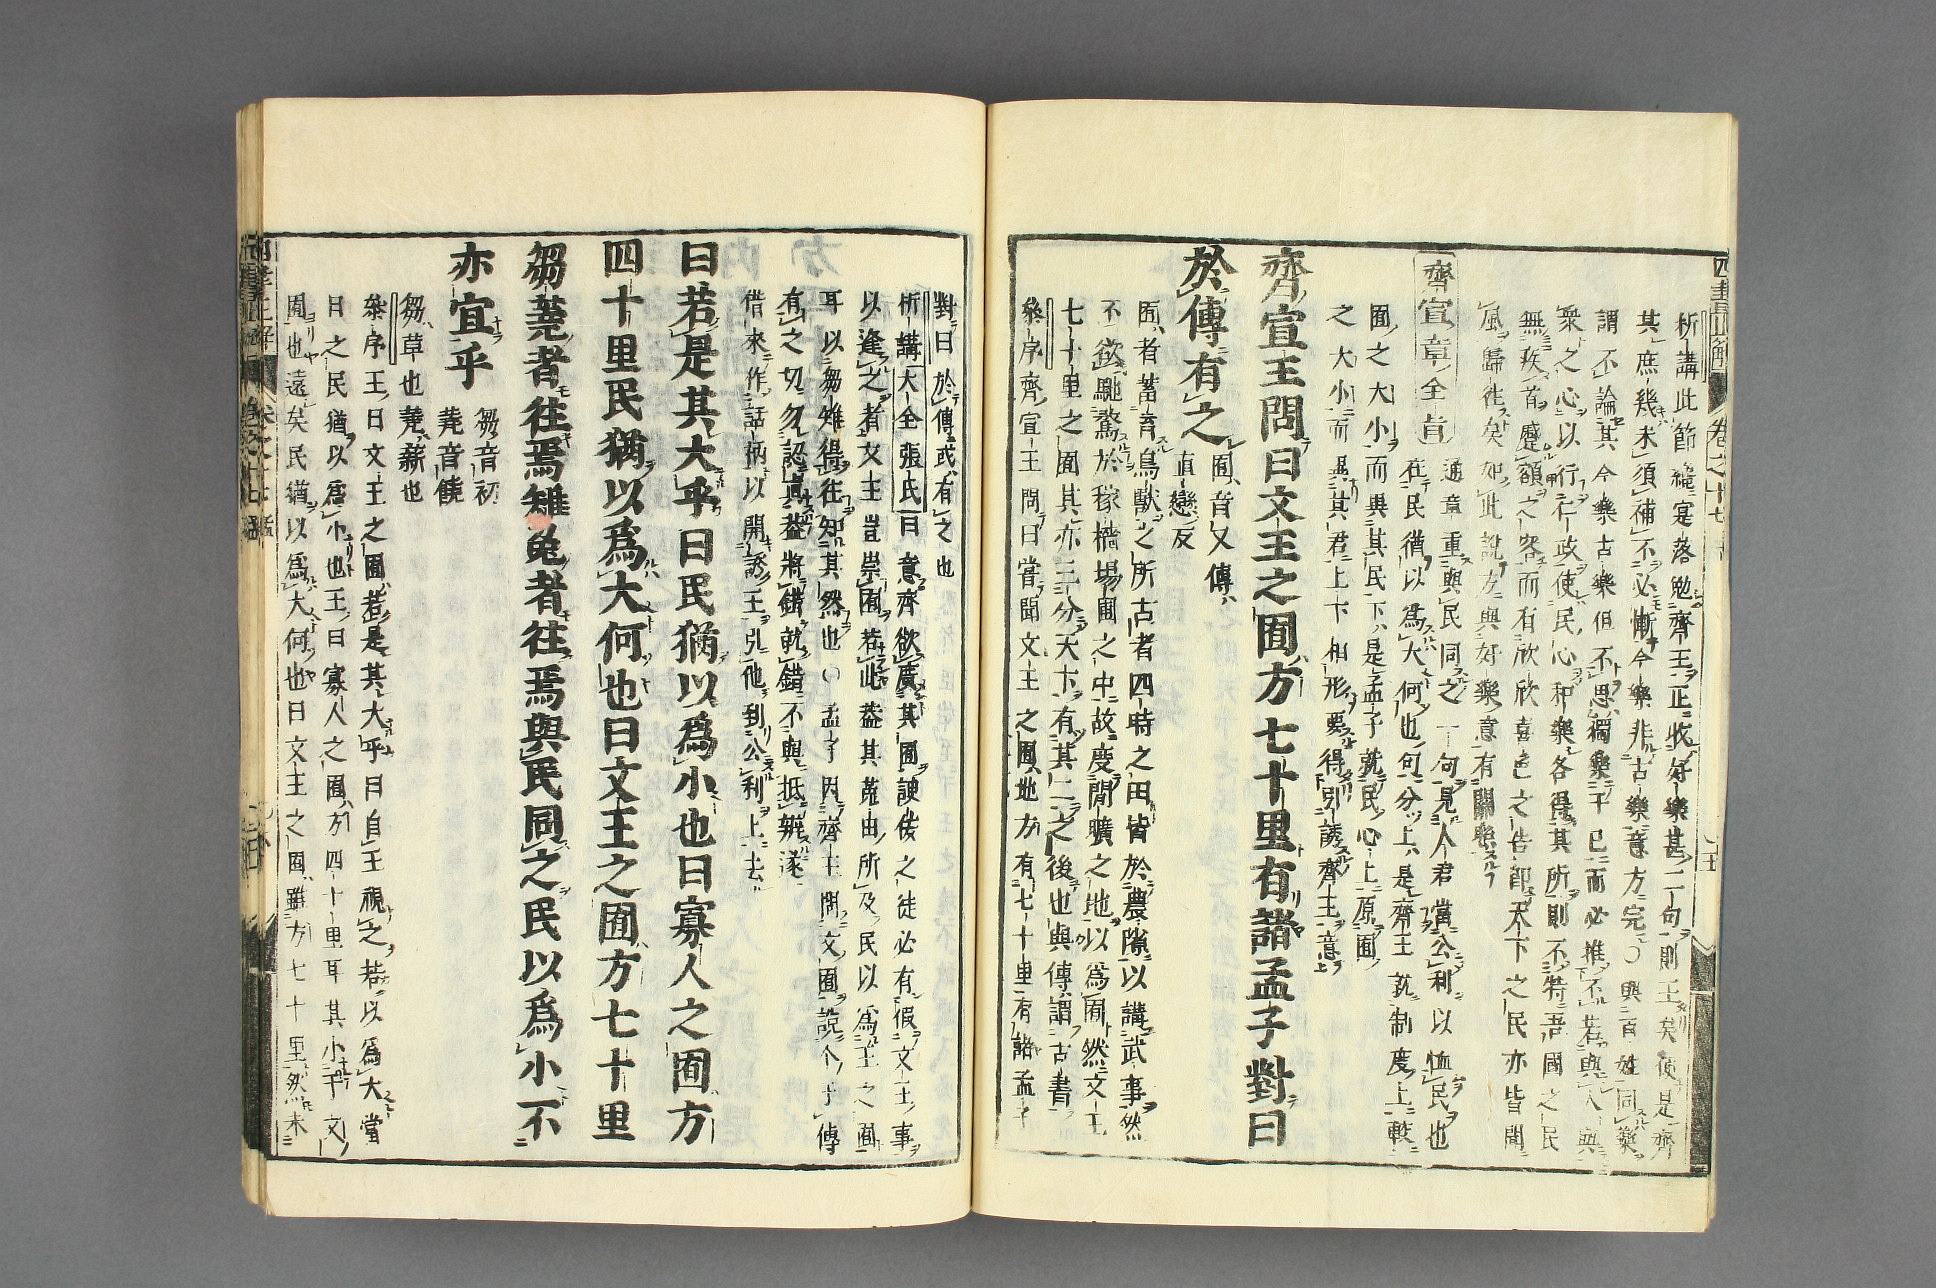 析講此節總寔落勉齊王正收好樂甚二句則王矣便是齊
其庶幾未須補不必慚今樂非古樂意方完〇與百姓同樂
謂不論其今樂古樂但不思獨樂于己而必推不若與人與
衆之心以行仁政使民心和樂各得其所則不特吾國之民
無疾首蹙額之容而有欣欣喜色之告卽天下之民亦皆聞
風歸徃矣如此說方與好樂意有關聯
齊宣章全旨 通章重與民同之一句見人君當公利以恤民也
在民猶以爲大何也句分上是齊王就制度上較
囿之大小而與其民下是孟子就民心上原囿
之大小而 其君上下相形要得引誘齊王意
齊宣王問曰文王之囿方七十里有諸孟子對曰
於傳有之 囿音又傳
直戀反
囿者蓄育鳥獸之所古者四時之田皆於農隙以講武事然
不欲馳騖於稼穡場圃之中故度閒曠之地以爲囿然文王
七十里之囿其亦三分天下有其二之後也與傳謂古書
叅序齊宣王問曰嘗聞文王之囿地方有七十里有諸孟子
對曰於傳或有之也
析講大全張氏曰意齊欲廣其囿諛佞之徒必有假文王事
以逢之者文王豈崇囿若此葢其蒐田所及民以爲王之囿
耳以芻雉得徃知其然也〇孟子因齊王問文囿說个於傳
有之切勿認眞葢將錯就錯不與抵辨遂
借來作話柄以開誘王引他到公利上去
曰若是其大乎曰民猶以爲小也曰寡人之囿方
四十里民猶以爲大何也曰文王之囿方七十里
芻蕘者徃焉雉兔者徃焉與民同之民以爲小不
亦宜乎 芻音初
蕘音饒
芻草也蕘薪也
叅序王曰文王之囿若是其大乎曰自王視之若以爲大當
日之民猶以爲小也王曰寡人之囿方四十里耳其小于文
囿也遠矣民猶以爲大何也曰文王之囿雖方七十里然未